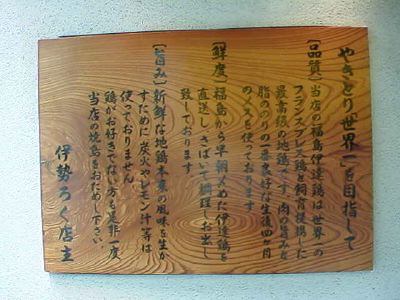 やきとり「世界一」を目指して
[品質]当店の福島伊達鶏は世界の
フランスブレス鶏と飼育提携した
最高級の地鶏です。肉の旨みと
脂ののりの一番良好な生後四ヶ月
のメスを使っております
[鮮度]福島から早朝〆めた伊達鶏を
直送し、さばいて調理しお出し
致しております
[旨み]新鮮な地鶏本来の風味を生か
すために炭火やレモン汁等は
使っておりません。
鶏がお好きでない方も是非一度
当店の焼鳥をおためし下さい。
伊勢ろく店主